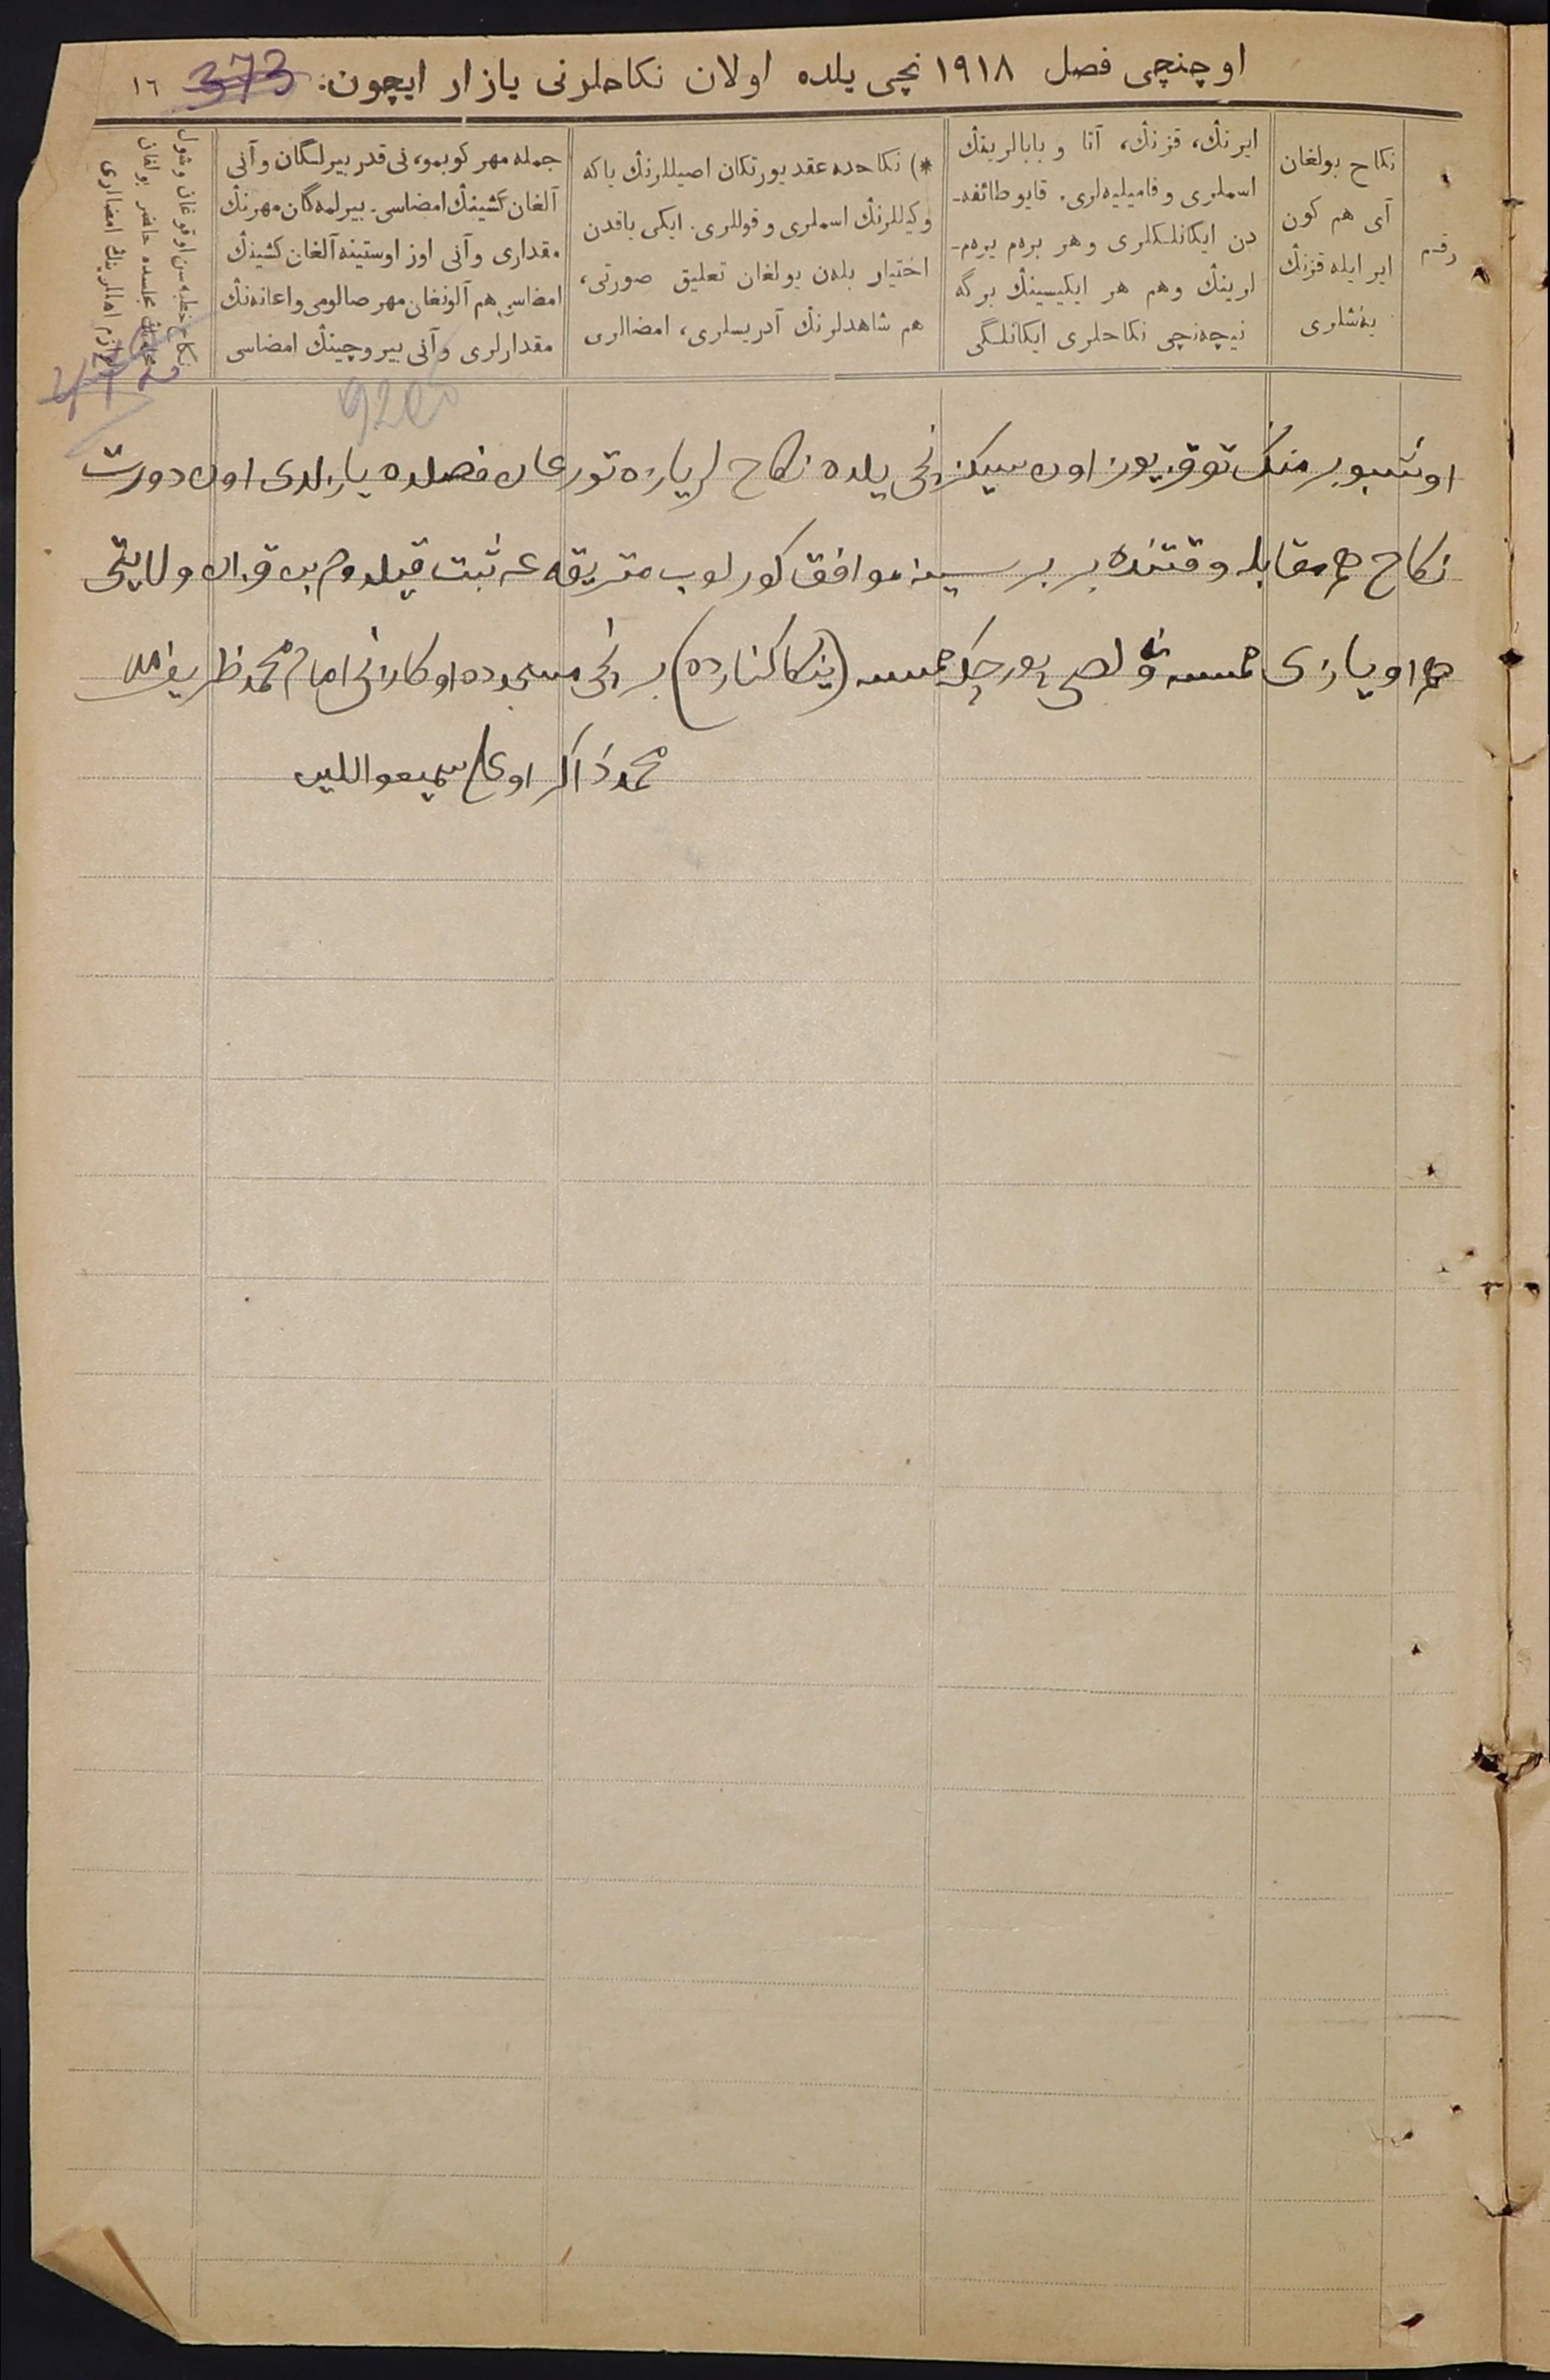 اوچنچی فصل ۱۹۱۸ نچی یلده اولان نکاحلرنی یازار ایچون. 373 ۱٦
رقم
نکاح بولغان
آی هم کون
ایر ایله قزنڭ
یەشلری
ایرنڭ، قزنڭ، آتا و بابالرینڭ
اسملری و فامیلیه‌لری. قایو طائفه‌ـ
دن ایکانلکلری و هر برەم یرەم‌ـ
لرینڭ وهم هر ایکیسینڭ برگه
نیچەنچی نکاحلری ایکانلگی
*) نکاحده عقد یورتکان اصیللرنڭ یاکه
وکیللرنڭ اسملری و قوللری. ایکی یاقدن
اختیار بلەن بولغان تعلیق صورتی،
هم شاهدلرنڭ آدریسلری، امضالری
جمله مهر کوبمو، نی قدر بیرلگان و آنی
آلغان کشینڭ امضاسی. بیرلمەگان مهرنڭ
مقداری و آنی اوز اوستینه آلغان کشینڭ
امضاسی هم آلونغان مهر صالومی و اعانه‌نڭ
مقدارلری و آنی بیروچینڭ امضاسی
نکاح خطبه‌سن اوقوغان وشول
مجلسده حاضر بولغان
امام‌لرینڭ امضالری
920
اوشبو بر منڭ توقز یوز اون سیکزنچی یلده نکاح لر یازه تورغان فصلده یازلدی اون دورت
نکاح هم مقابله وقتنده بر برسینه موافق کورلوب متریقه غه ثبت قیلدوم بن قزان ولایتی
هم اویازی یڭا (کنارده) برنچی مسجدده اوکازنی امام محمد ظریف
محمدذاکر اوغلی سمیع‌واللین